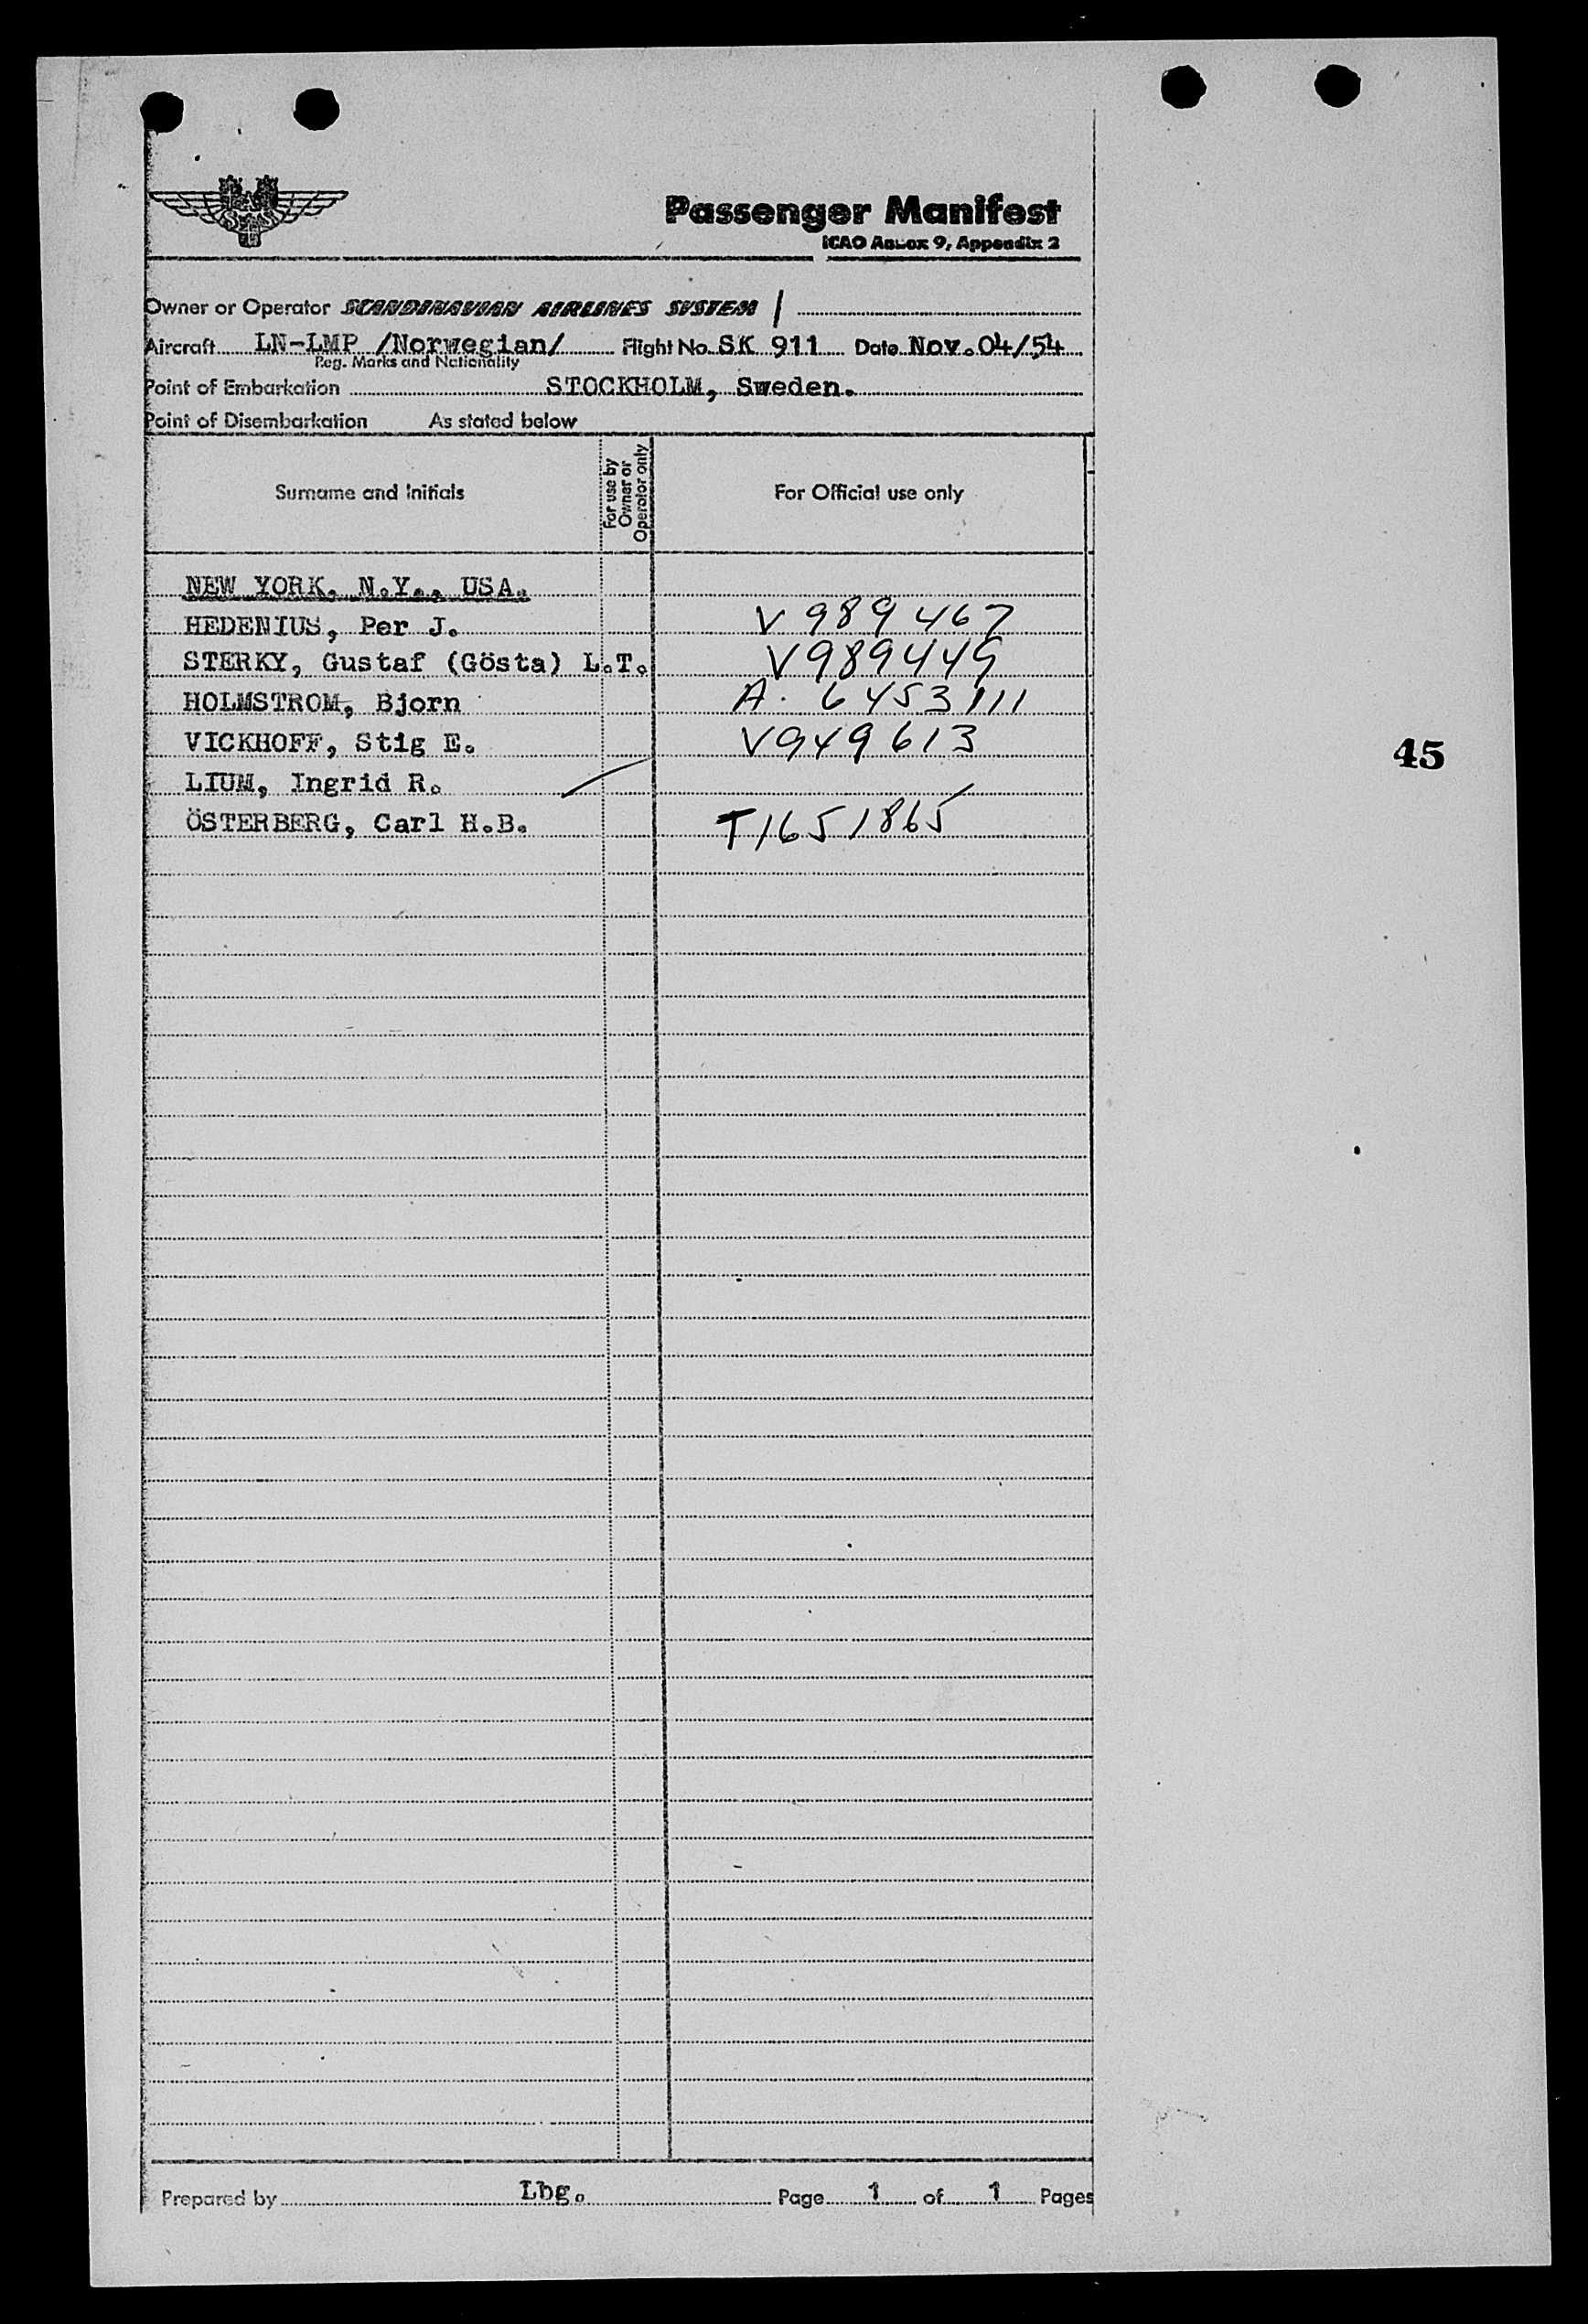 SAS
Passenger Manifest
ICAO Annex 9, Appendix 2
Owner or Operator SCANDINAVIAN AIRLINES SYSTEM /
Aircraft LN-LMP /Norwegian/ Flight No. SK 911 Date Nov.04/54
Reg. Marks and Nationality
Point of Embarkation STOCKHOLM, Sweden.
Point of Disembarkation As stated below
Surname and Initials For use by Owner or Operator only For Official use only
NEW YORK, N.Y., USA.
HEDENIUS, Per J. V 989 467
STERKY, Gustaf (Gösta) L.T. V989449
HOLMSTROM, Bjorn A. 6453111
VICKHOFF, Stig E. V949613
45
LIUM, Ingrid R.
ÖSTERBERG, Carl H.B. T1651865
Prepared by Lbg. Page 1 of 1 Pages